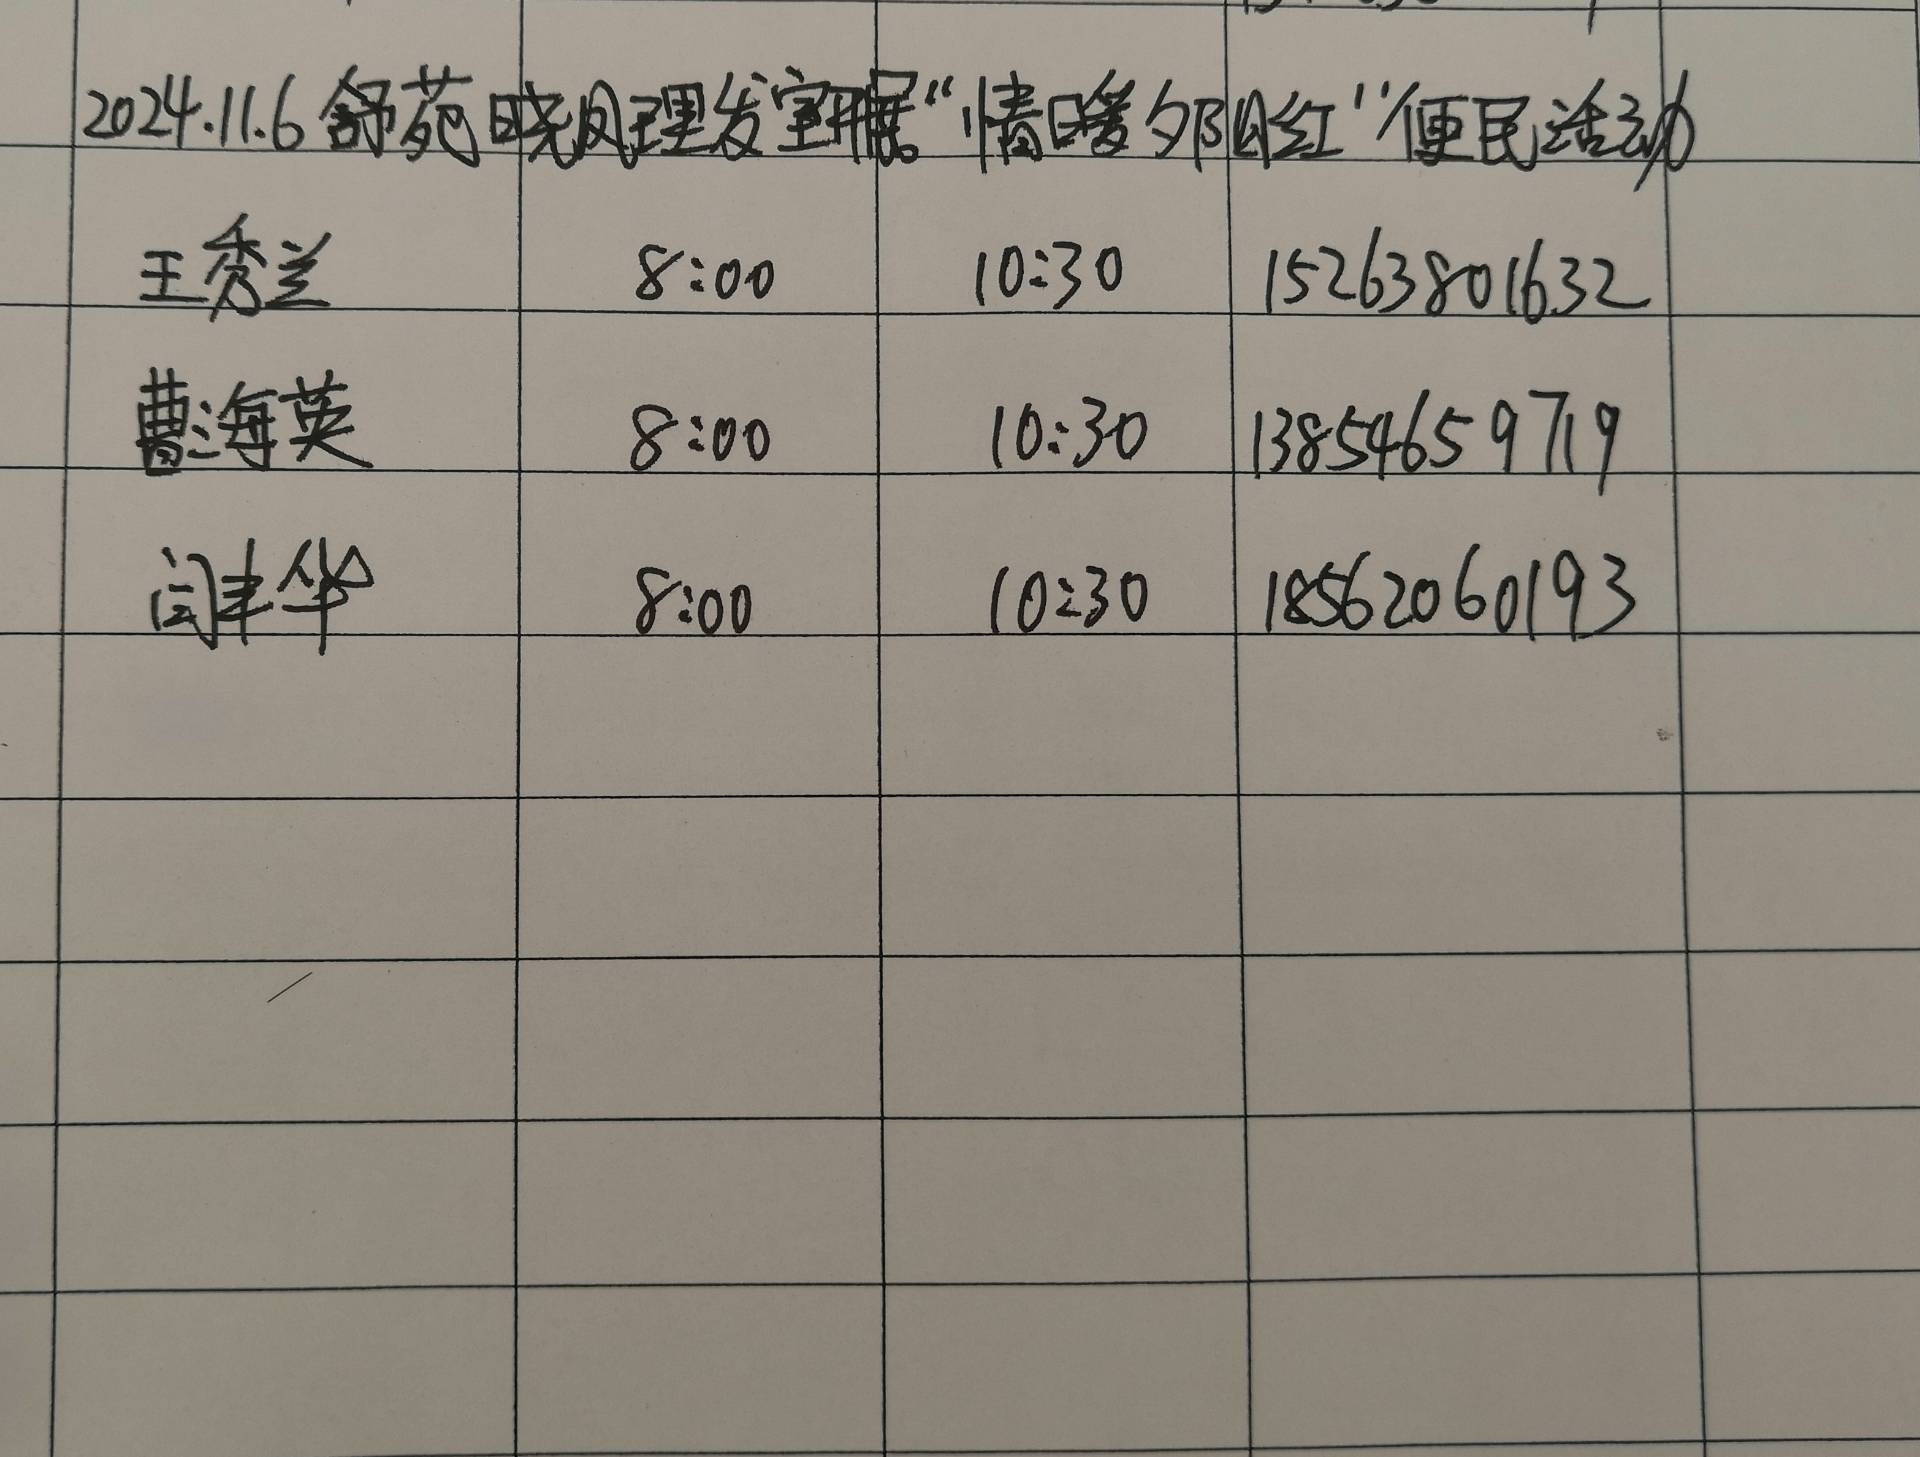 2024.11.6 舒苑晓凤理发室开展“情暖夕阳红”便民活动
王秀兰 8:00 10:30 15263801632
曹海英 8:00 10:30 13854659719
闫丰华 8:00 10:30 18562060193